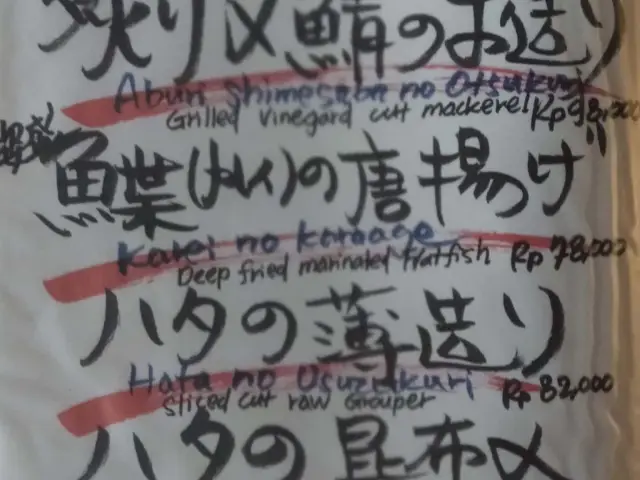 炙り〆鯖のお造り
Aburi Shimesaba no Otsukuri
Grilled vinegard cut mackerel Rp 98,000
鰈(カレイ)の唐揚げ
Karei no karaage
Deep fried marinated flatfish Rp 78,000
ハタの薄造り
Hata no Usuzukuri
sliced cut raw Grouper Rp 82,000
ハタの昆布〆